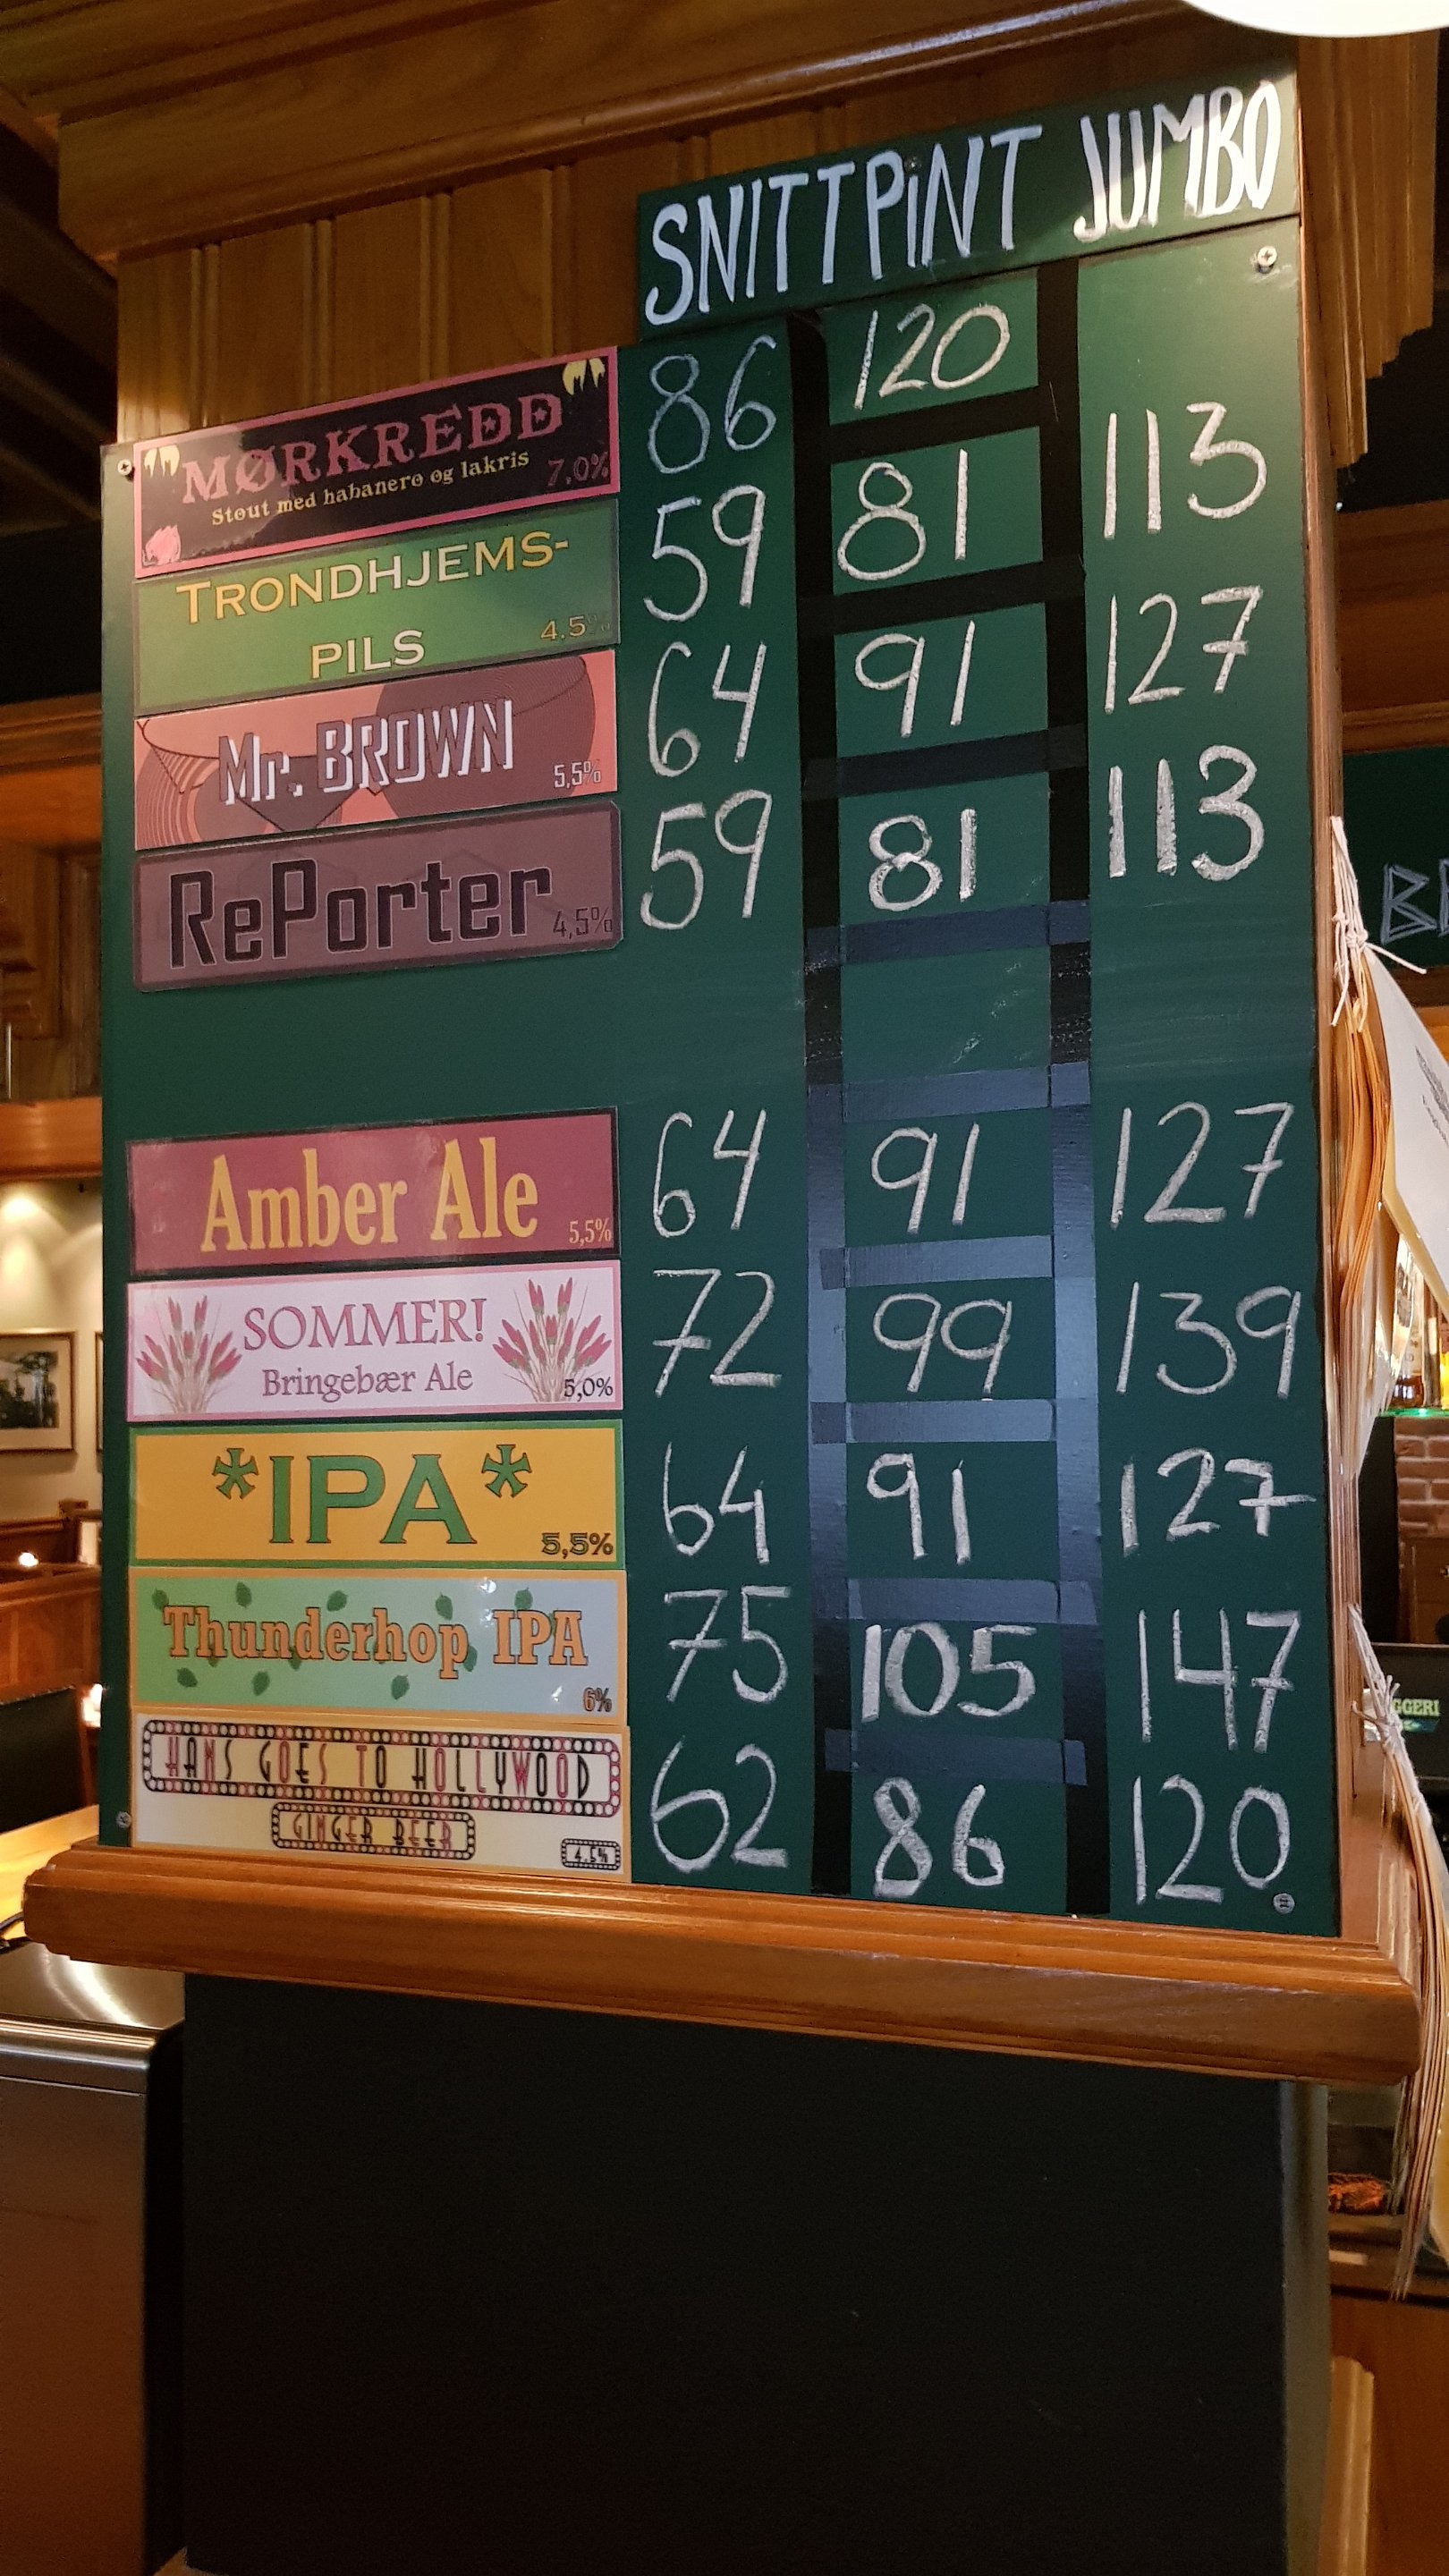 SNITT PiNT JUMBO
MØRKREDD
Stout med habanero og lakris
7.0%
86 120
TRONDHJEMS-
PILS
4.5%
59 81 113
Mr. BROWN
5,5%
64 91 127
RePorter
4,5%
59 81 113
Amber Ale
5,5%
64 91 127
SOMMER!
Bringebær Ale
5,0%
72 99 139
*IPA*
5,5%
64 91 127
Thunderhop IPA
6%
75 105 147
HANS GOES TO HOLLYWOOD
GINGER BEER
4.5%
62 86 120
GGERI